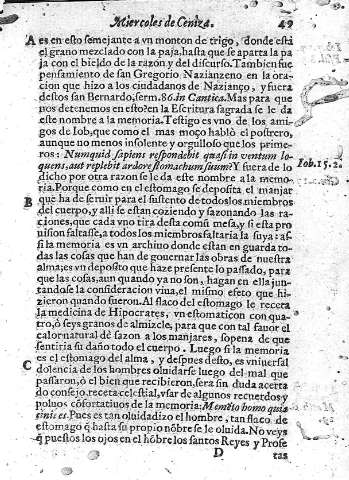 Miercoles de Ceniza. 49
A es en esto semejante a vn monton de trigo, donde està
el grano mezclado con la paja, hasta que se aparta la pa
ja con el bieldo de la razon y del discurso. Tambien fue
pensamiento de san Gregorio Nazianzeno en la ora
cion que hizo a los ciudadanos de Nazianço, y fuera
destos san Bernardo, serm. 86. in Cantica. Mas para que
nos detenemos en esto? en la Escritura sagrada se le da
este nombre a la memoria. Testigo es vno de los ami
gos de Iob, que como el mas moço hablò el postrero,
aunque no menos insolente y orgulloso que los pri
meros: Numquid sapiens respondebit quasi in ventum lo-
quens, aut replebit ardore stomachum suum? Y fuera de lo Iob. 15. 2.
dicho por otra razon se le da este nombre a la memo-
ria. Porque como en el estomago se deposita el manjar
B que ha de seruir para el sustento de todos los miembros
del cuerpo, y alli se estan coziendo y sazonando las ra
ciones, que cada vno tira desta comũ mesa, y si esta pro
uision faltasse, a todos los miembros faltaria la suya: as-
si la memoria es vn archiuo donde estan en guarda to
das las cosas que han de gouernar las obras de nuestra
alma; es vn deposito que haze presente lo passado, para
que las cosas, aun quando ya no son, hagan en ella jun-
tandose la consideracion viua, el mismo efeto que hi-
zieron quando fueron. Al flaco del estomago le receta
la medicina de Hipocrates, vn estomaticon con qua-
tro, ò seys granos de almizcle, para que con tal fauor el
calor natural dè sazon a los manjares, sopena de que
sentiria su daño todo el cuerpo. Luego si la memoria
es el estomago del alma, y despues desto, es vniuersal
C dolencia de los hombres oluidarse luego del mal que
passaron, ò el bien que recibieron, sera sin duda acerta
do consejo, receta celestial, vsar de algunos recuerdos y
poluos cõfortatiuos de la memoria: Memẽto homo quia
cinis es. Pues es tan oluidadizo el hombre, tan flaco de
estomago q̃ hasta su propio nõbre se le oluida. No veys
q̃ puestos los ojos en el hõbre los santos Reyes y Profe
D tas